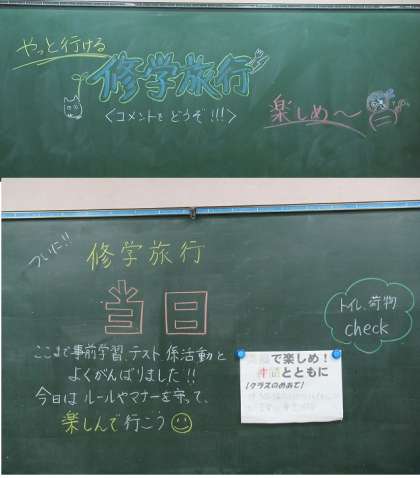 やっと行ける
修学旅行
<コメントをどうぞ!!!>
楽しめ〜
ついに!!
修学旅行
当日
ここまで事前学習、テスト、係活動と
よくがんばりました!!
今日はルールやマナーを守って、
楽しんで行こう
トイレ、荷物
check
で楽しめ!
とともに
【クラスのめあて】